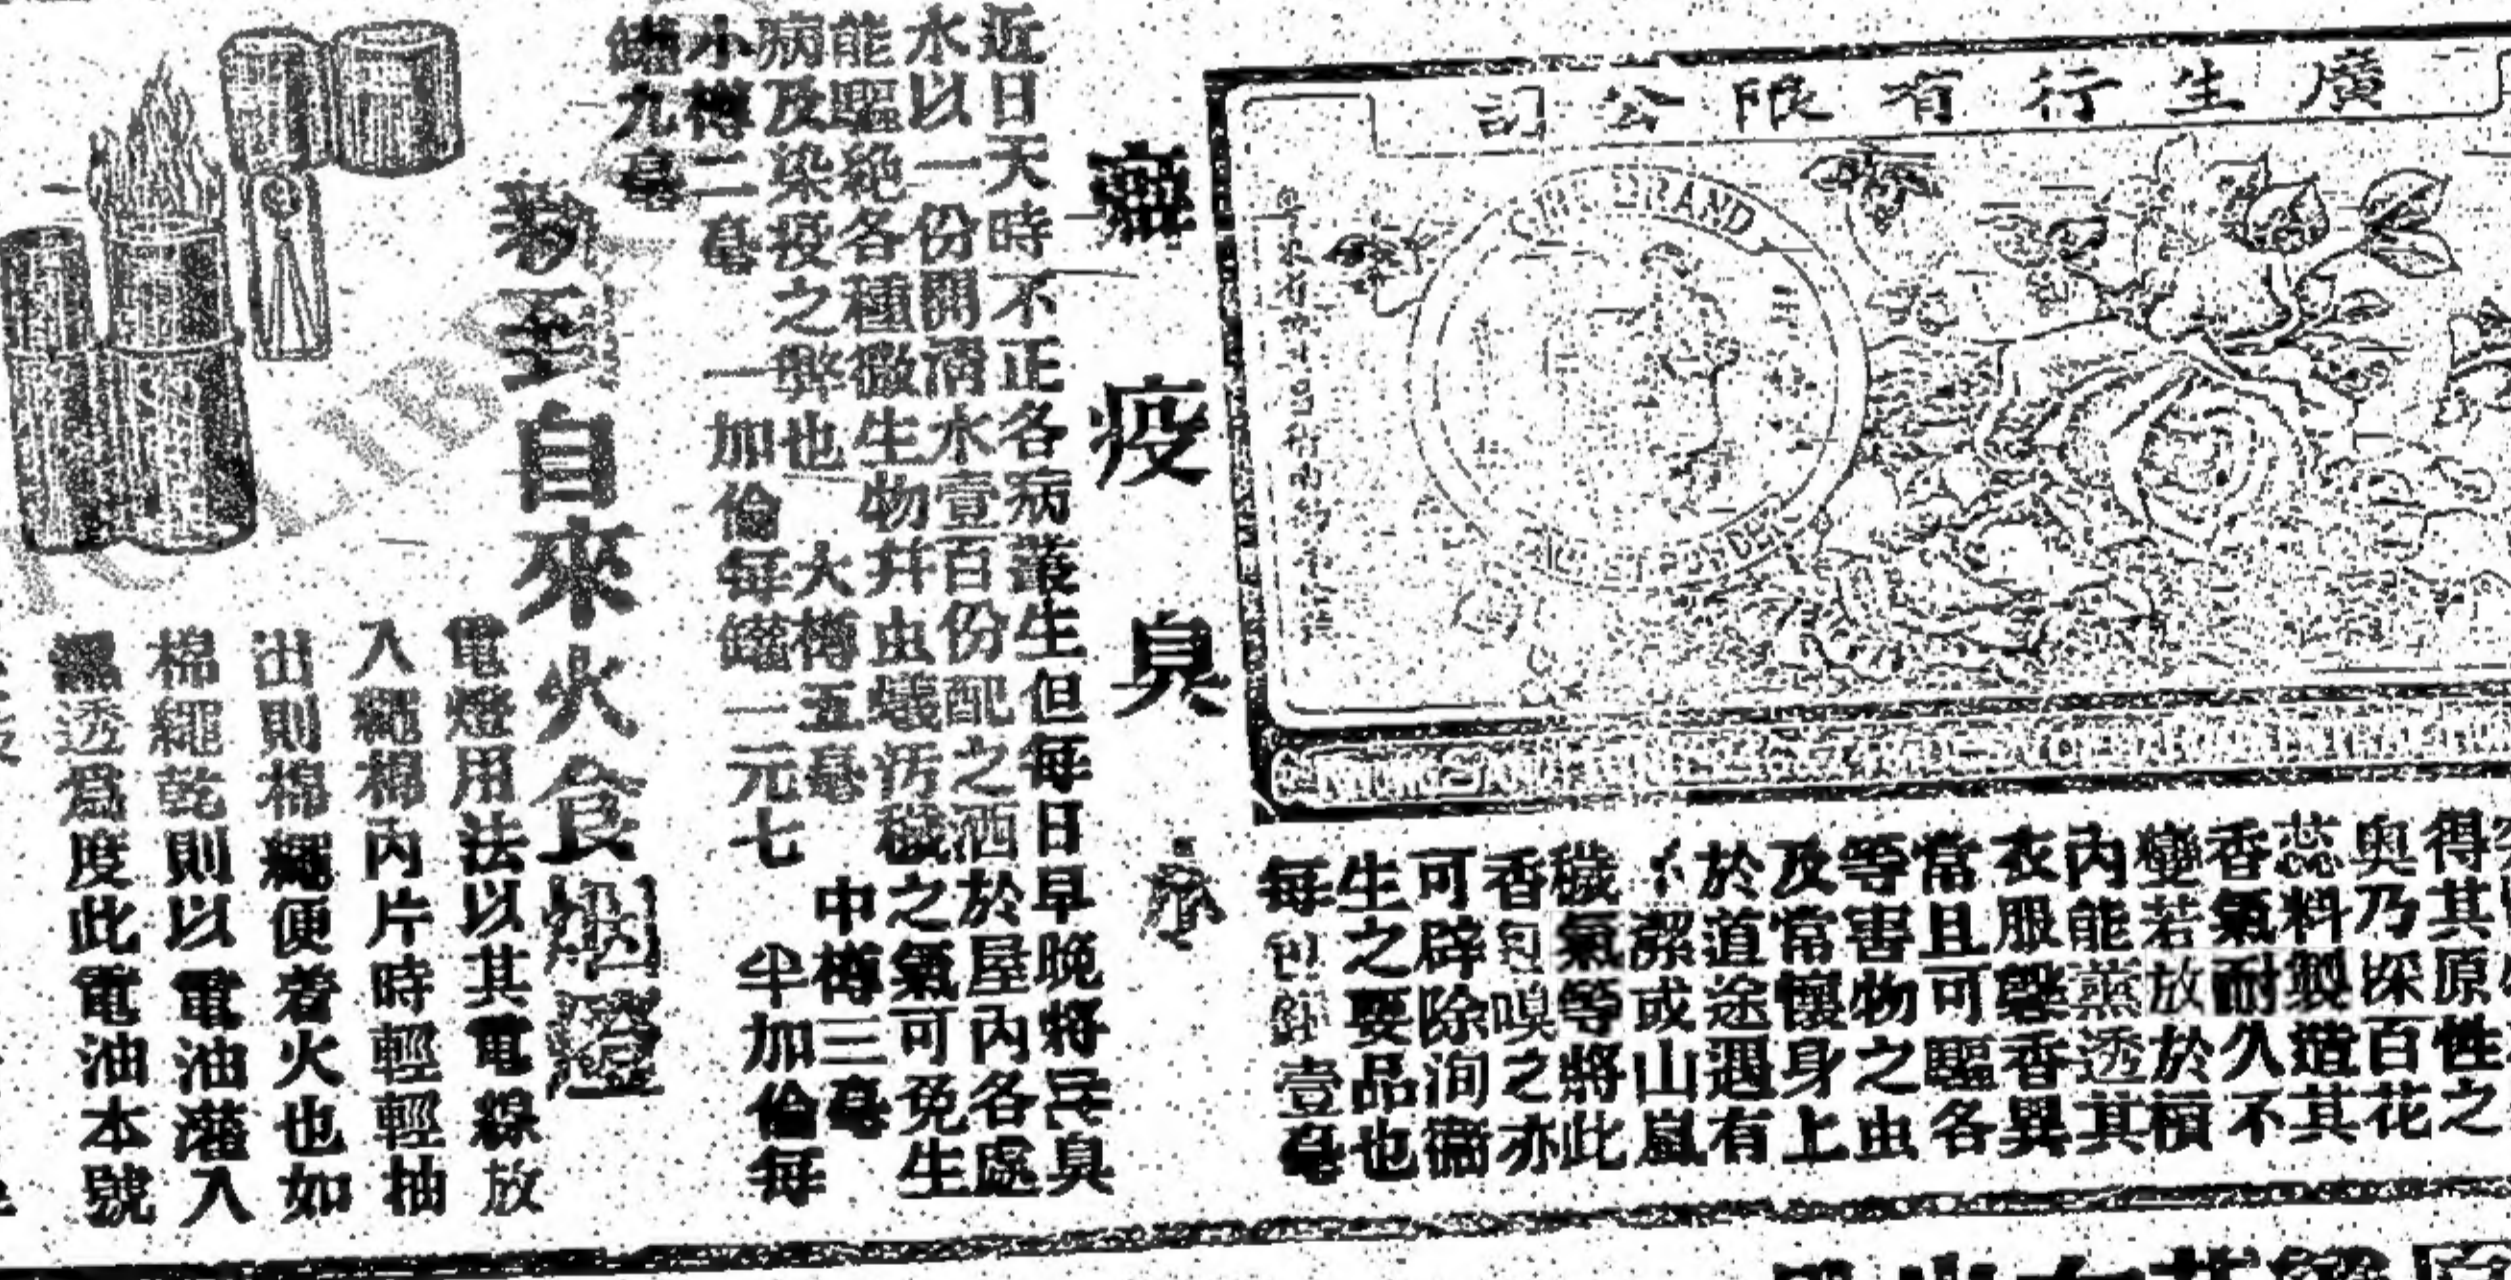 廣生行有限公司
BRAND
得其原性之
奥乃探百花
蕊料製造其
香氣耐久不
變若放於槓
內能蒸透其
衣服馨香異
常且可驅各
等害物之虫
及常懷身上
於道途遇有
潔或山嵐
穢氣等將此
香包嗅之亦
可辟除洵衞
生之要品也
每包銀壹毫
辟疫臭水
近日天時不正各病叢生但每日早晚將臭
水以一份開清水壹百份配之洒於屋內各處
能驅絕各種微生物并虫蟻汚穢之氣可免生
病及染疫之弊也 大樽五毫 中樽三毫
小樽二毫 一加倫每罐一元七 半加倫每
罐九毫
新至自來火食烟燈
電燈用法以其電線放
入繩棉內片時輕輕抽
出則棉繩便着火也如
棉繩乾則以電油灌入
濕透爲度此電油本號